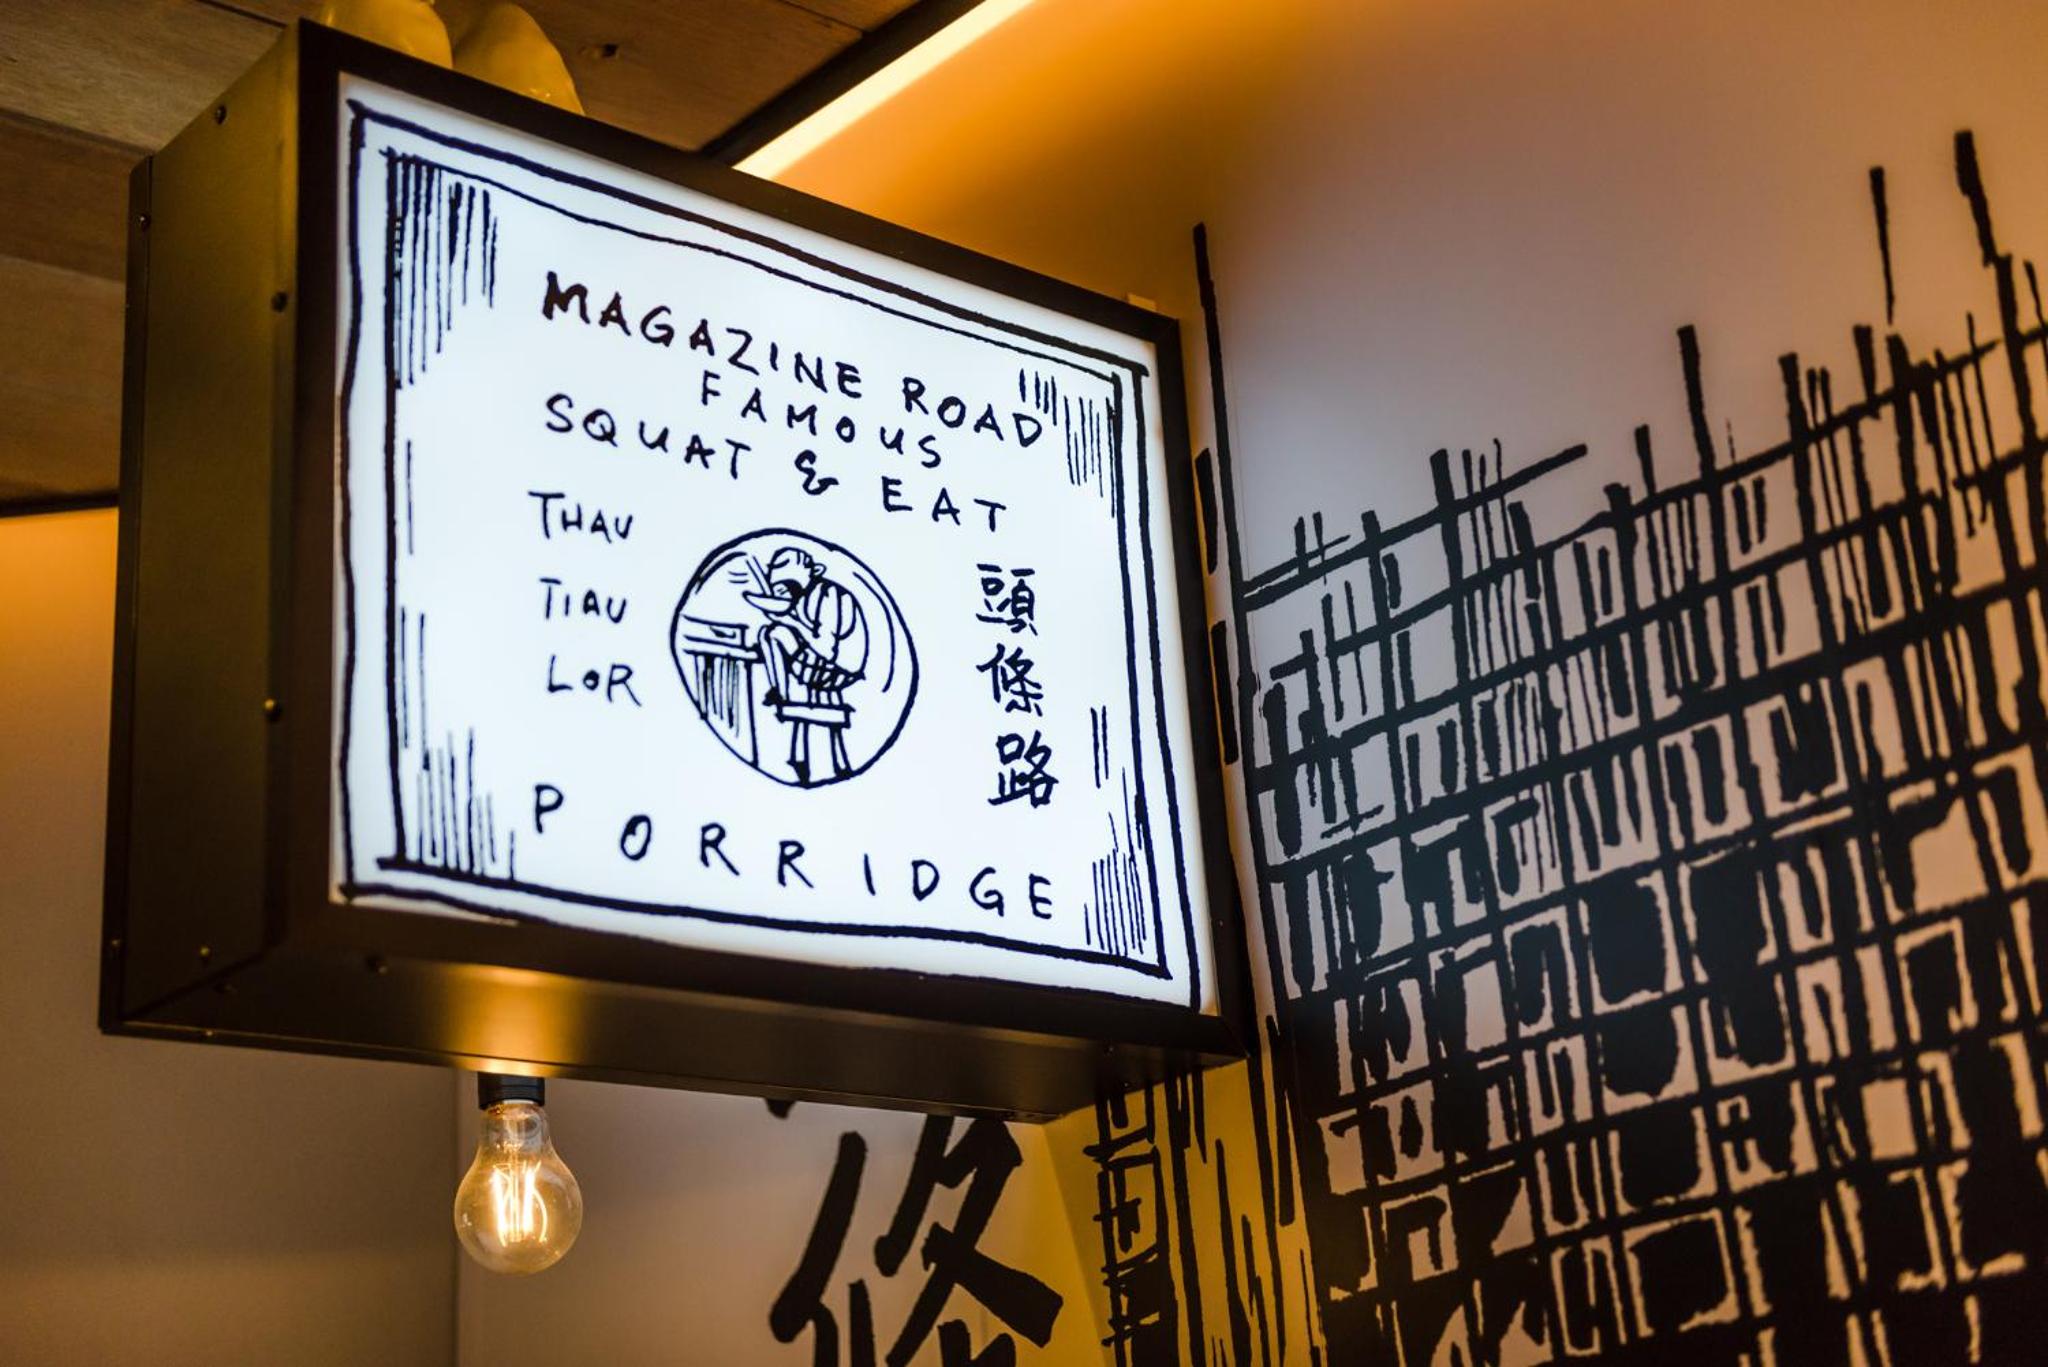 MAGAZINE ROAD
FAMOUS
SQUAT & EAT
THAU
TIAU
LOR
頭條路
PORRIDGE
條